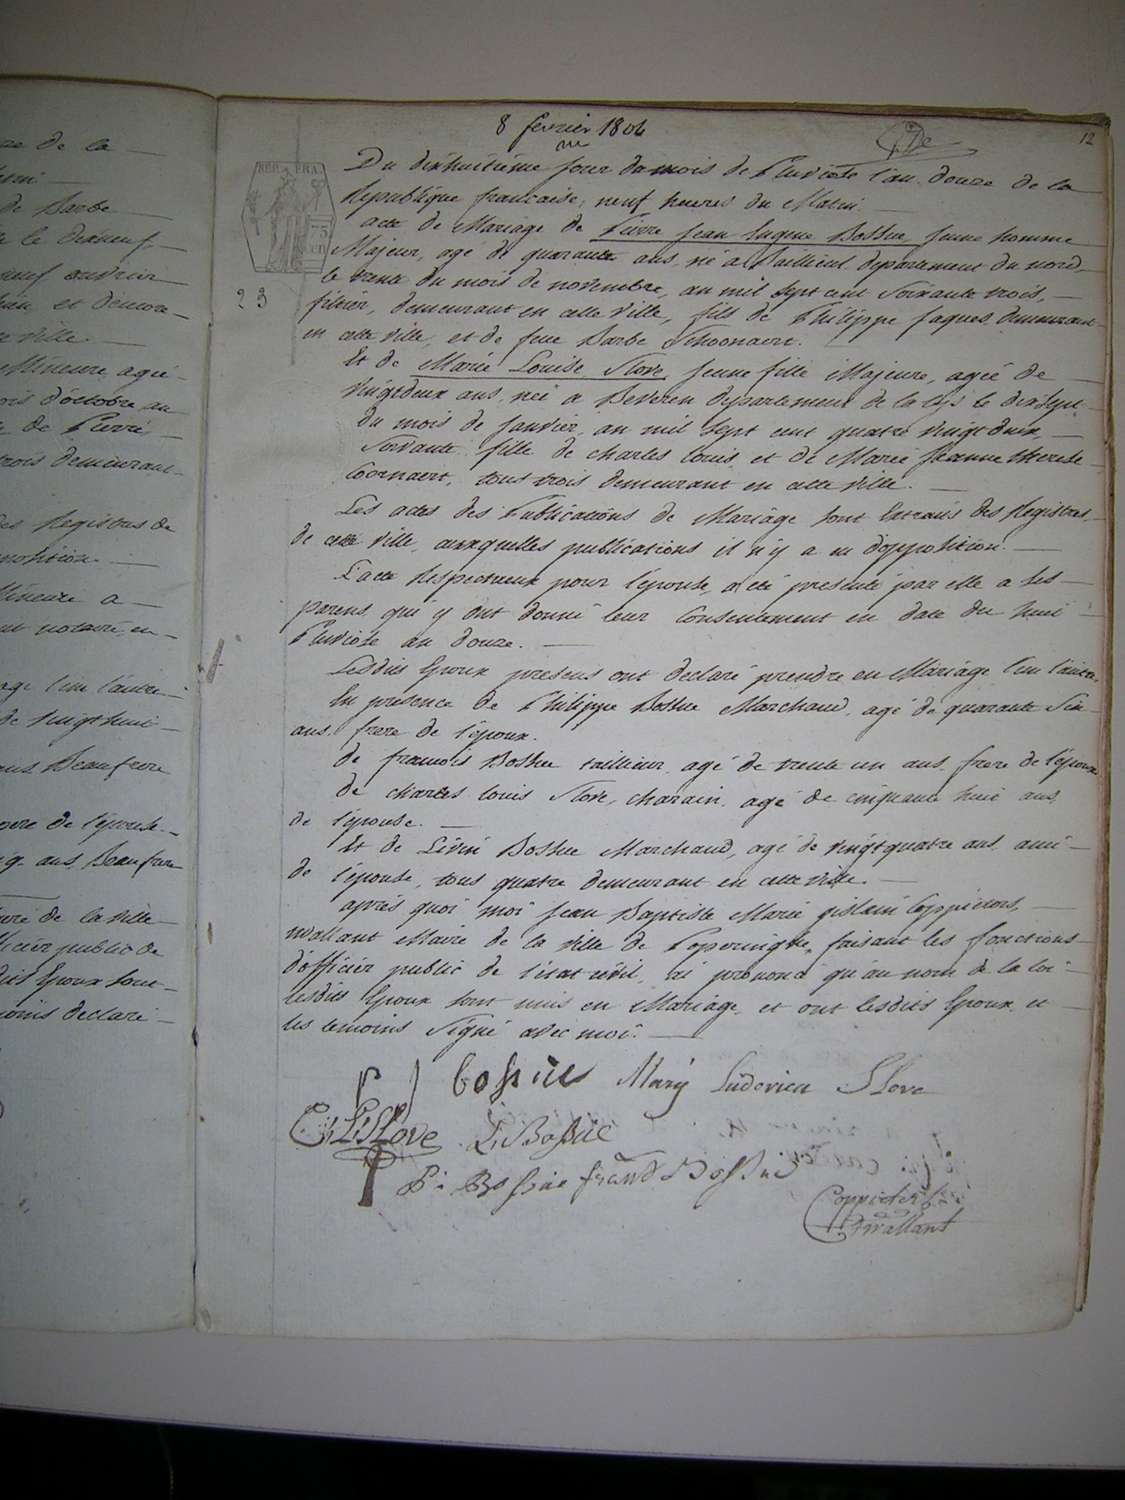 8 fevrier 1804
12
REP. FRA.
75
CEN
23
Du dixhuitième jour du mois de Pluviose l'an douze de la
Republique francaise, neuf heures du Matin
acte de Mariage de Pierre Jean Eugene Bossue, Jeune homme
Majeur, agé de quarante ans, né a Bailleul departement du nord,
le trente du mois de novembre, an mil sept cent soixante trois,
filtier, demeurant en cette ville, fils de Philippe Jaques demeurant
en cette ville, et de feue Barbe Schoonaert.
Et de Marie Louise Slove, Jeune fille Majeure, agée de
vingtdeux ans, née a Beveren departement de la Lys le dixsept
du mois de Janvier, an mil sept cent quatre vingt deux,
fille de charles louis et de Marie Jeanne therese
Coornaert, tous trois demeurant en cette ville.
Les actes des Publications de Mariage sont Extraits des Registres
de cette ville, auxquelles publications il n'y a eu d'opposition.
L'acte Respectueux pour l'epouse, a été presenté par elle a ses
parens qui y ont donné leur Consentement en date du huit
Pluviose an douze.
Lesdits Epoux presens ont declaré prendre en Mariage l'un l'autre
En presence de Philippe Bossue Marchand, agé de quarante six
ans, frere de l'epoux.
de francois Bossue tailleur agé de trente un ans frere de l'epoux
de charles louis Slove, charain, agé de cinquante huit ans,
de l'epouse.
Et de Livin Bossue Marchand, agé de vingtquatre ans, ami
de l'epouse, tous quatre demeurant en cette ville.
après quoi moi Jean Baptiste Marie gislain Coppieters,
wallant Maire de la ville de Poperingue, faisant les fonctions
d'officier public de l'état civil, ai prononcé qu'au nom de la loi
lesdits Epoux sont unis en Mariage, et ont lesdits Epoux et
les temoins signé avec moi.
Marij Ludovica Slove
C. L. Slove
L. Bossue
P. Bossue
Bossue
Coppieters
wallant
ze de la
de Barbe
le dixneuf
neuf ouvrier
et demeu-
ville.
Mineure agée
mois d'octobre an
de Pierre
trois demeurant
des Registres de
opposition.
Mineure a
notaire, en
l'un l'autre
de vingt huit
ans Beaufrere
de l'epouse.
ans, Beaufrere
de la ville
officier public de
Epoux sont
declaré